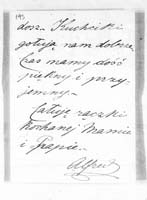 193
dosz. Kucharki
gotują nam dobrze
czas mamy dość
piękny i przy-
jemny.
Całuję rączki
kochanej Mamie
i Papie.
Alfred